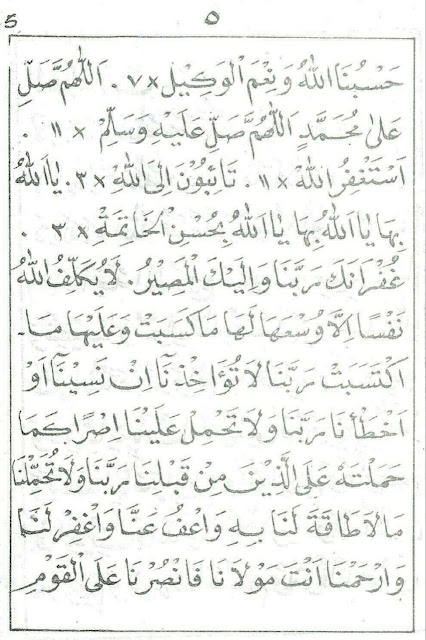 5 ٥
حَسْبُنَا اللهُ وَنِعْمَ الْوَكِيْلُ ×٧. اَللّٰهُمَّ صَلِّ
عَلٰى مُحَمَّدٍ اَللّٰهُمَّ صَلِّ عَلَيْهِ وَسَلِّمْ × ١١ .
اَسْتَغْفِرُ اللهَ × ١١. تَائِبُوْنَ اِلَى اللهِ ×٣. يَا اَللهُ
بِهَا يَا اَللهُ بِهَا يَا اَللهُ بِحُسْنِ الْخَاتِمَةِ × ٣ .
غُفْرَانَكَ رَبَّنَا وَاِلَيْكَ الْمَصِيْرُ. لَا يُكَلِّفُ اللهُ
نَفْسًا اِلَّا وُسْعَهَا لَهَا مَا كَسَبَتْ وَعَلَيْهَا مَا-
اكْتَسَبَتْ رَبَّنَا لَا تُؤَاخِذْنَآ اِنْ نَسِيْنَآ اَوْ
اَخْطَأْنَا رَبَّنَا وَلَا تَحْمِلْ عَلَيْنَا اِصْرًا كَمَا
حَمَلْتَهُ عَلَى الَّذِيْنَ مِنْ قَبْلِنَا رَبَّنَا وَلَا تُحَمِّلْنَا
مَا لَا طَاقَةَ لَنَا بِهِ وَاعْفُ عَنَّا وَاغْفِرْ لَنَا
وَارْحَمْنَا اَنْتَ مَوْلَانَا فَانْصُرْنَا عَلَى الْقَوْمِ